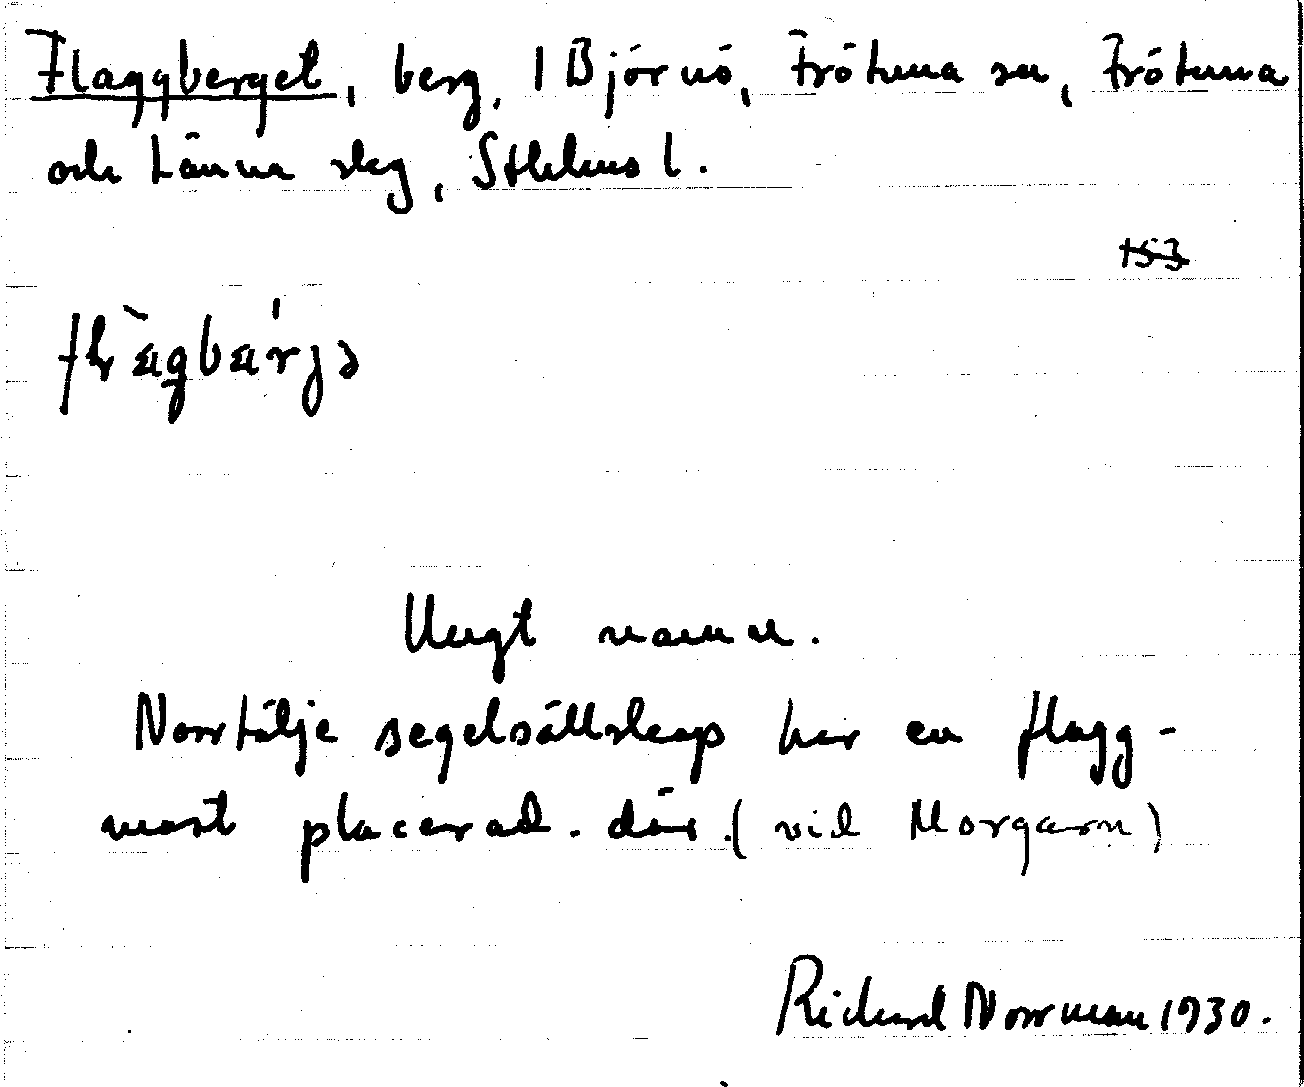 Flaggberget, berg, 1 Björnö, Frötuna sn, Frötuna
och Länna slg, Sthlms l.
153
flàgbær̍jə
Ungt namn.
Norrtälje segelsällskap har en flagg-
mast placerad. där. (vid Morgarn)
Richard Norrman 1930.